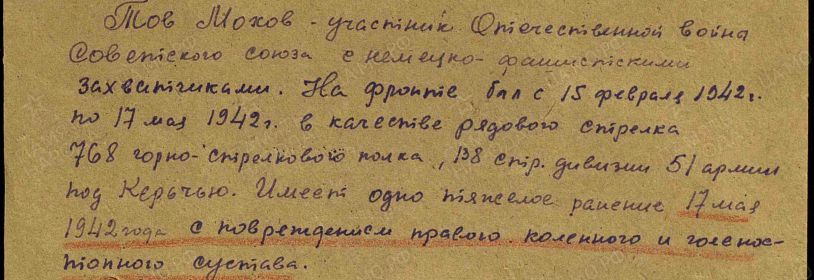 Тов Мохов - участник Отечественной война
Советского союза с немецко-фашистскими
захватчиками. На фронте был с 15 февраля 1942г.
по 17 мая 1942г. в качестве рядового стрелка
768 горно-стрелкового полка, 138 стр. дивизии 51 армии
под Керчью. Имеет одно тяжелое ранение 17 мая
1942 года с повреждением правого коленного и голенос-
топного сустава.